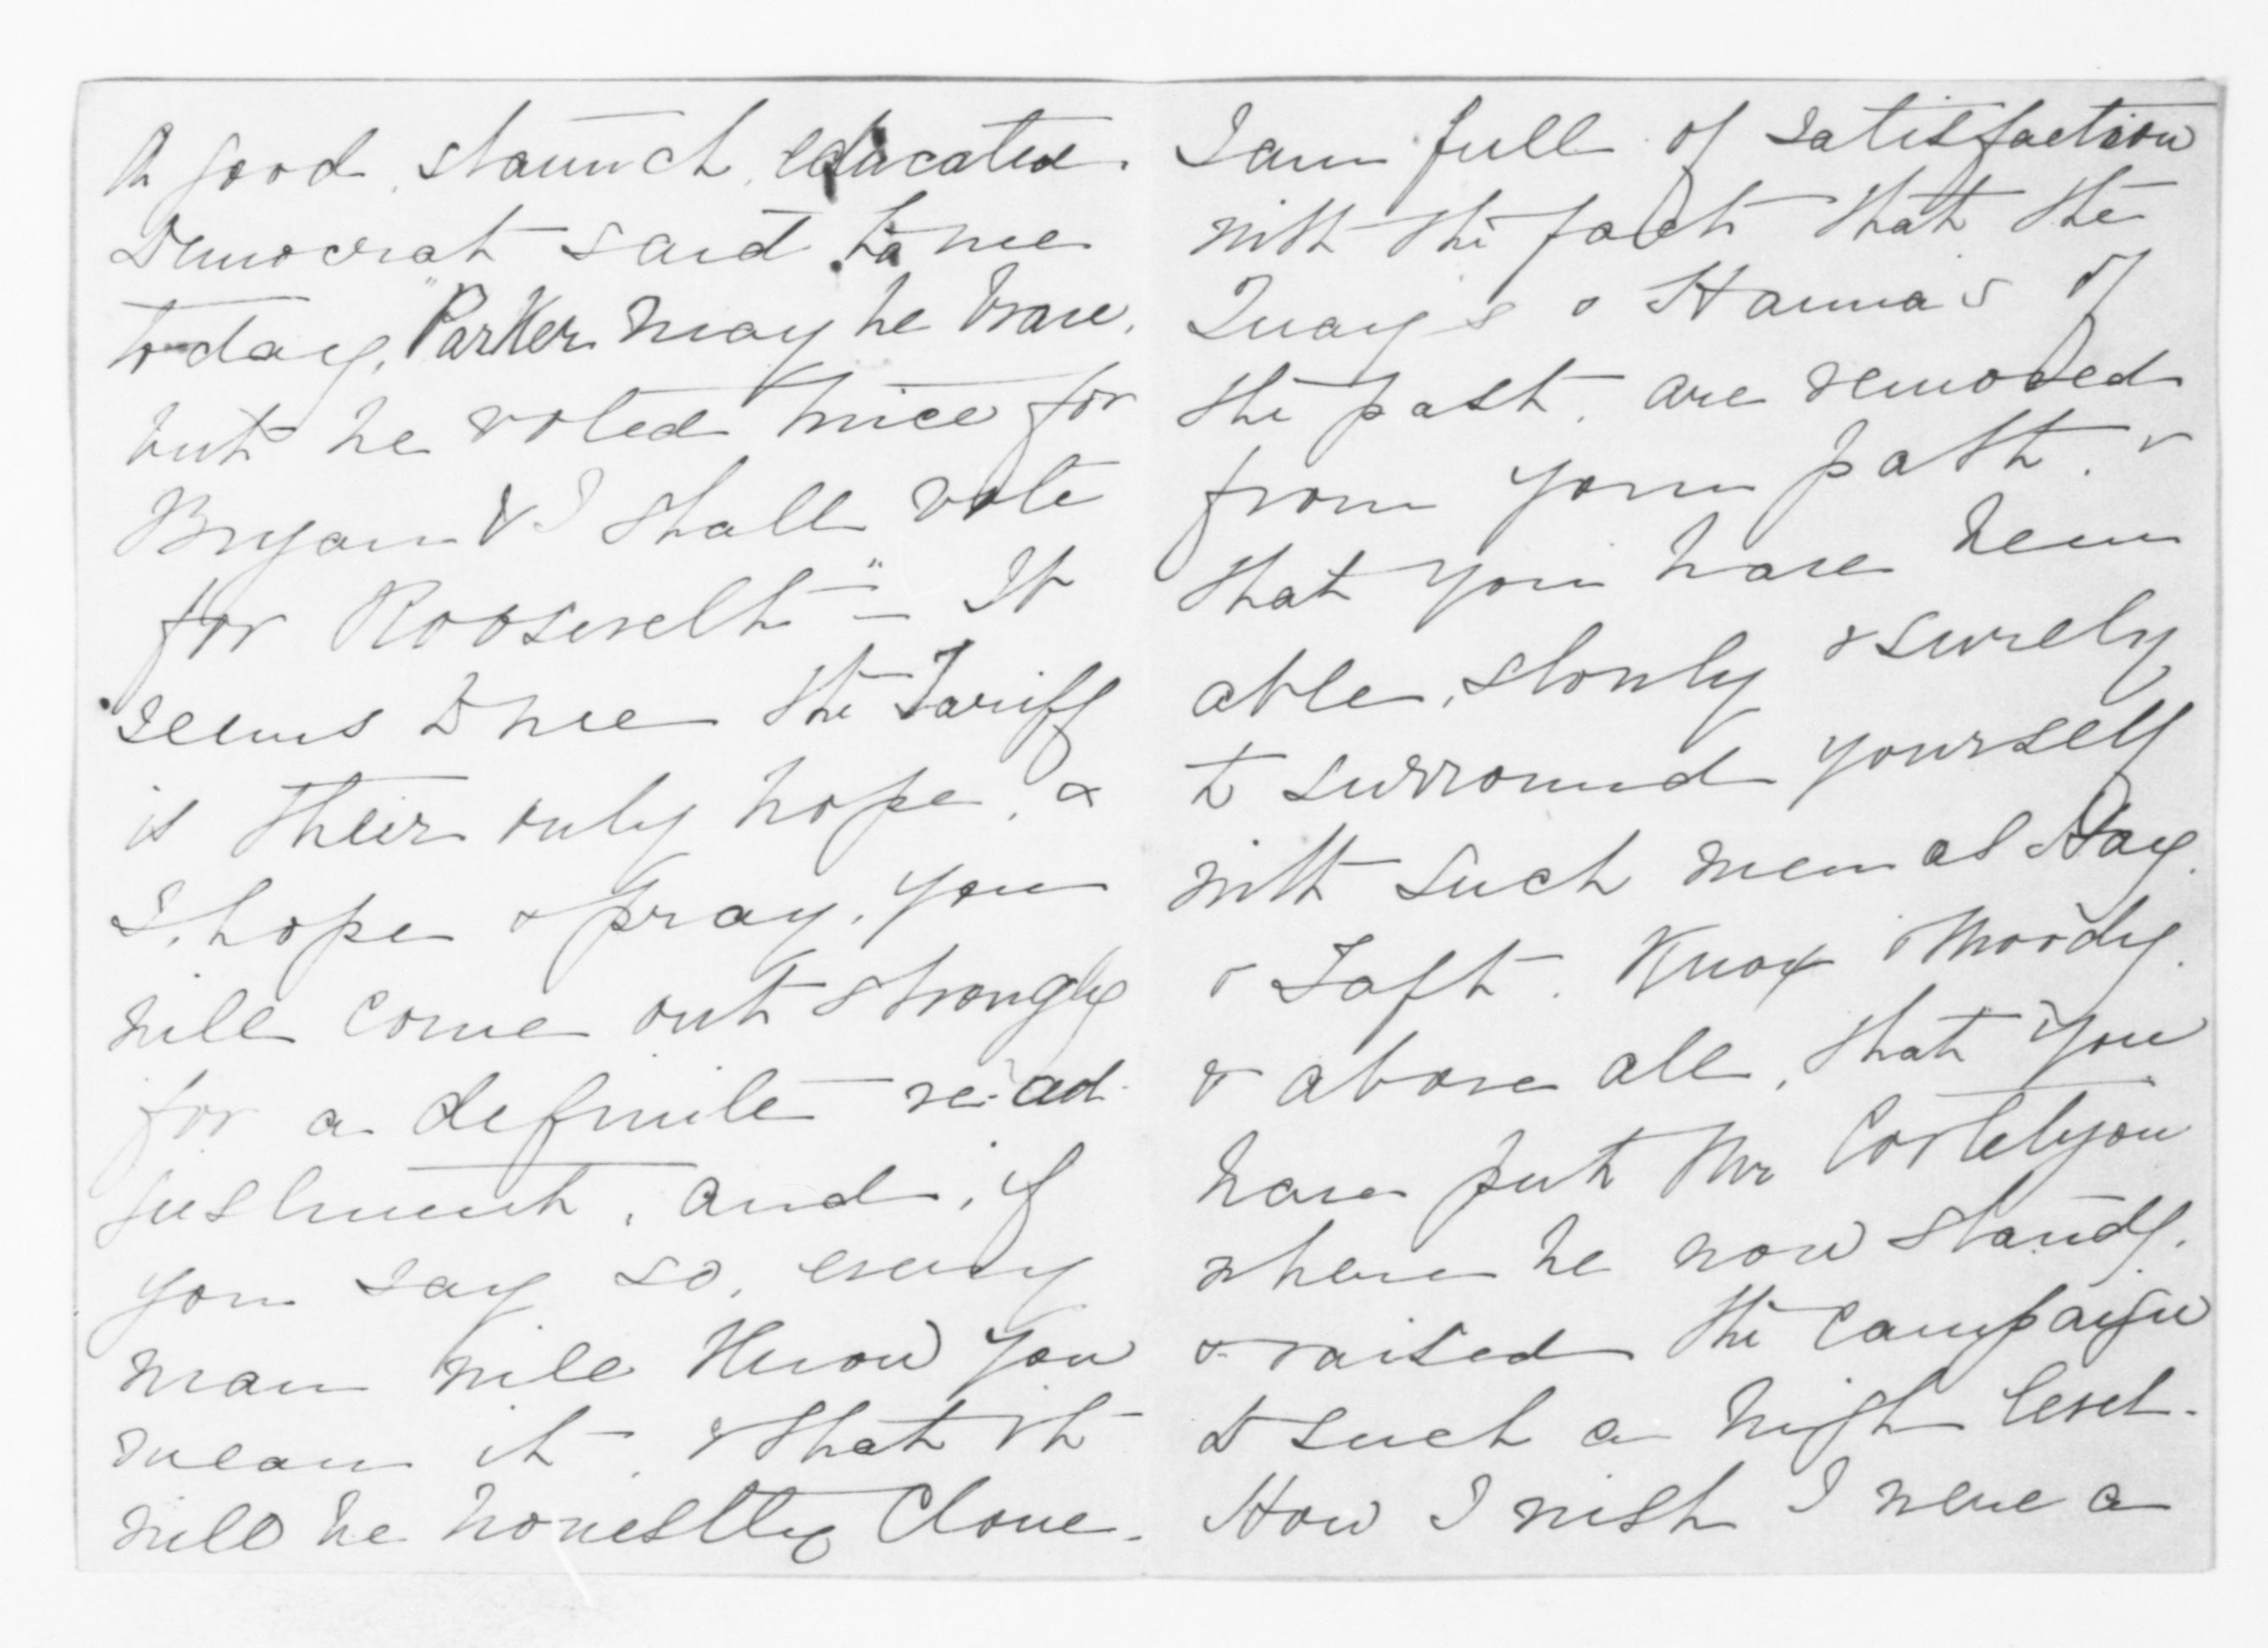 A good, staunch, educated.
Democrat said to me
to-day, "Parker may be brave,
but he voted twice for
Bryan & I shall vote
for Roosevelt" – It
seems to me the Tariff
is their only hope, &
I hope & pray, you
will come out strongly
for a definite re-ad-
justment, and, if
you say so, every
man will know you
mean it, & that it
will be honestly done.
I am full of satisfaction
with the fact that the
Quay's & Hanna's of
the past, are removed
from your path, &
that you have been
able, slowly & surely
to surround yourself
with such men as Hay.
& Taft. Knox & Moody.
& above all, that you
have put Mr Cortelyou
where he now stands.
& raised the campaign
to such a high level.
How I wish I were a